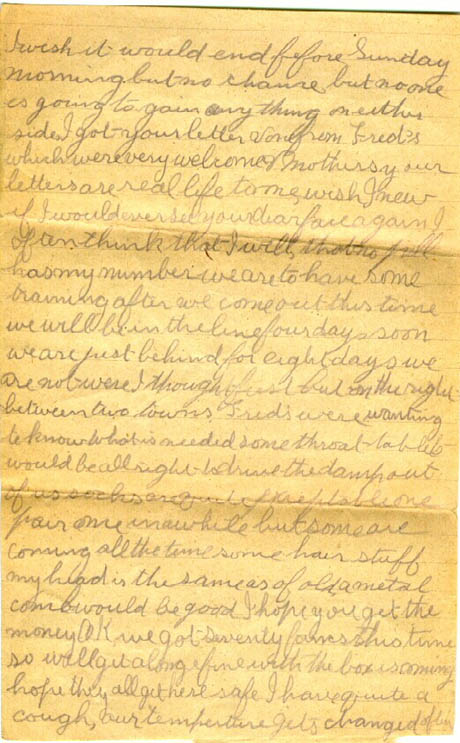 I wish it would end before Sunday
morning but no chance but no one
is going to gain anything on either
side I got your letter & one from Fred's
which were very welcome mothers your
letters are real life to me wish I new
if I would ever see your dear face again I
often think that I will, that no
has my number we are to have some
training after we come out this time
we will be in the line four days soon
we are just behind for eight days we
are not were I thought of but on the right
between two towns Freds were wanting
to know what is needed some throat tablets
would be all right to drive the damp out
of us socks are quite exceptable one
pair once in a while but some are
coming all the time some hair stuff
my head is the same as of old a metal
comb would be good I hope you get the
money O.K. we got seventy francs this time
so will git along fine with the box is coming
hope they all get here safe I have quite a
cough, our temperture gets changed often